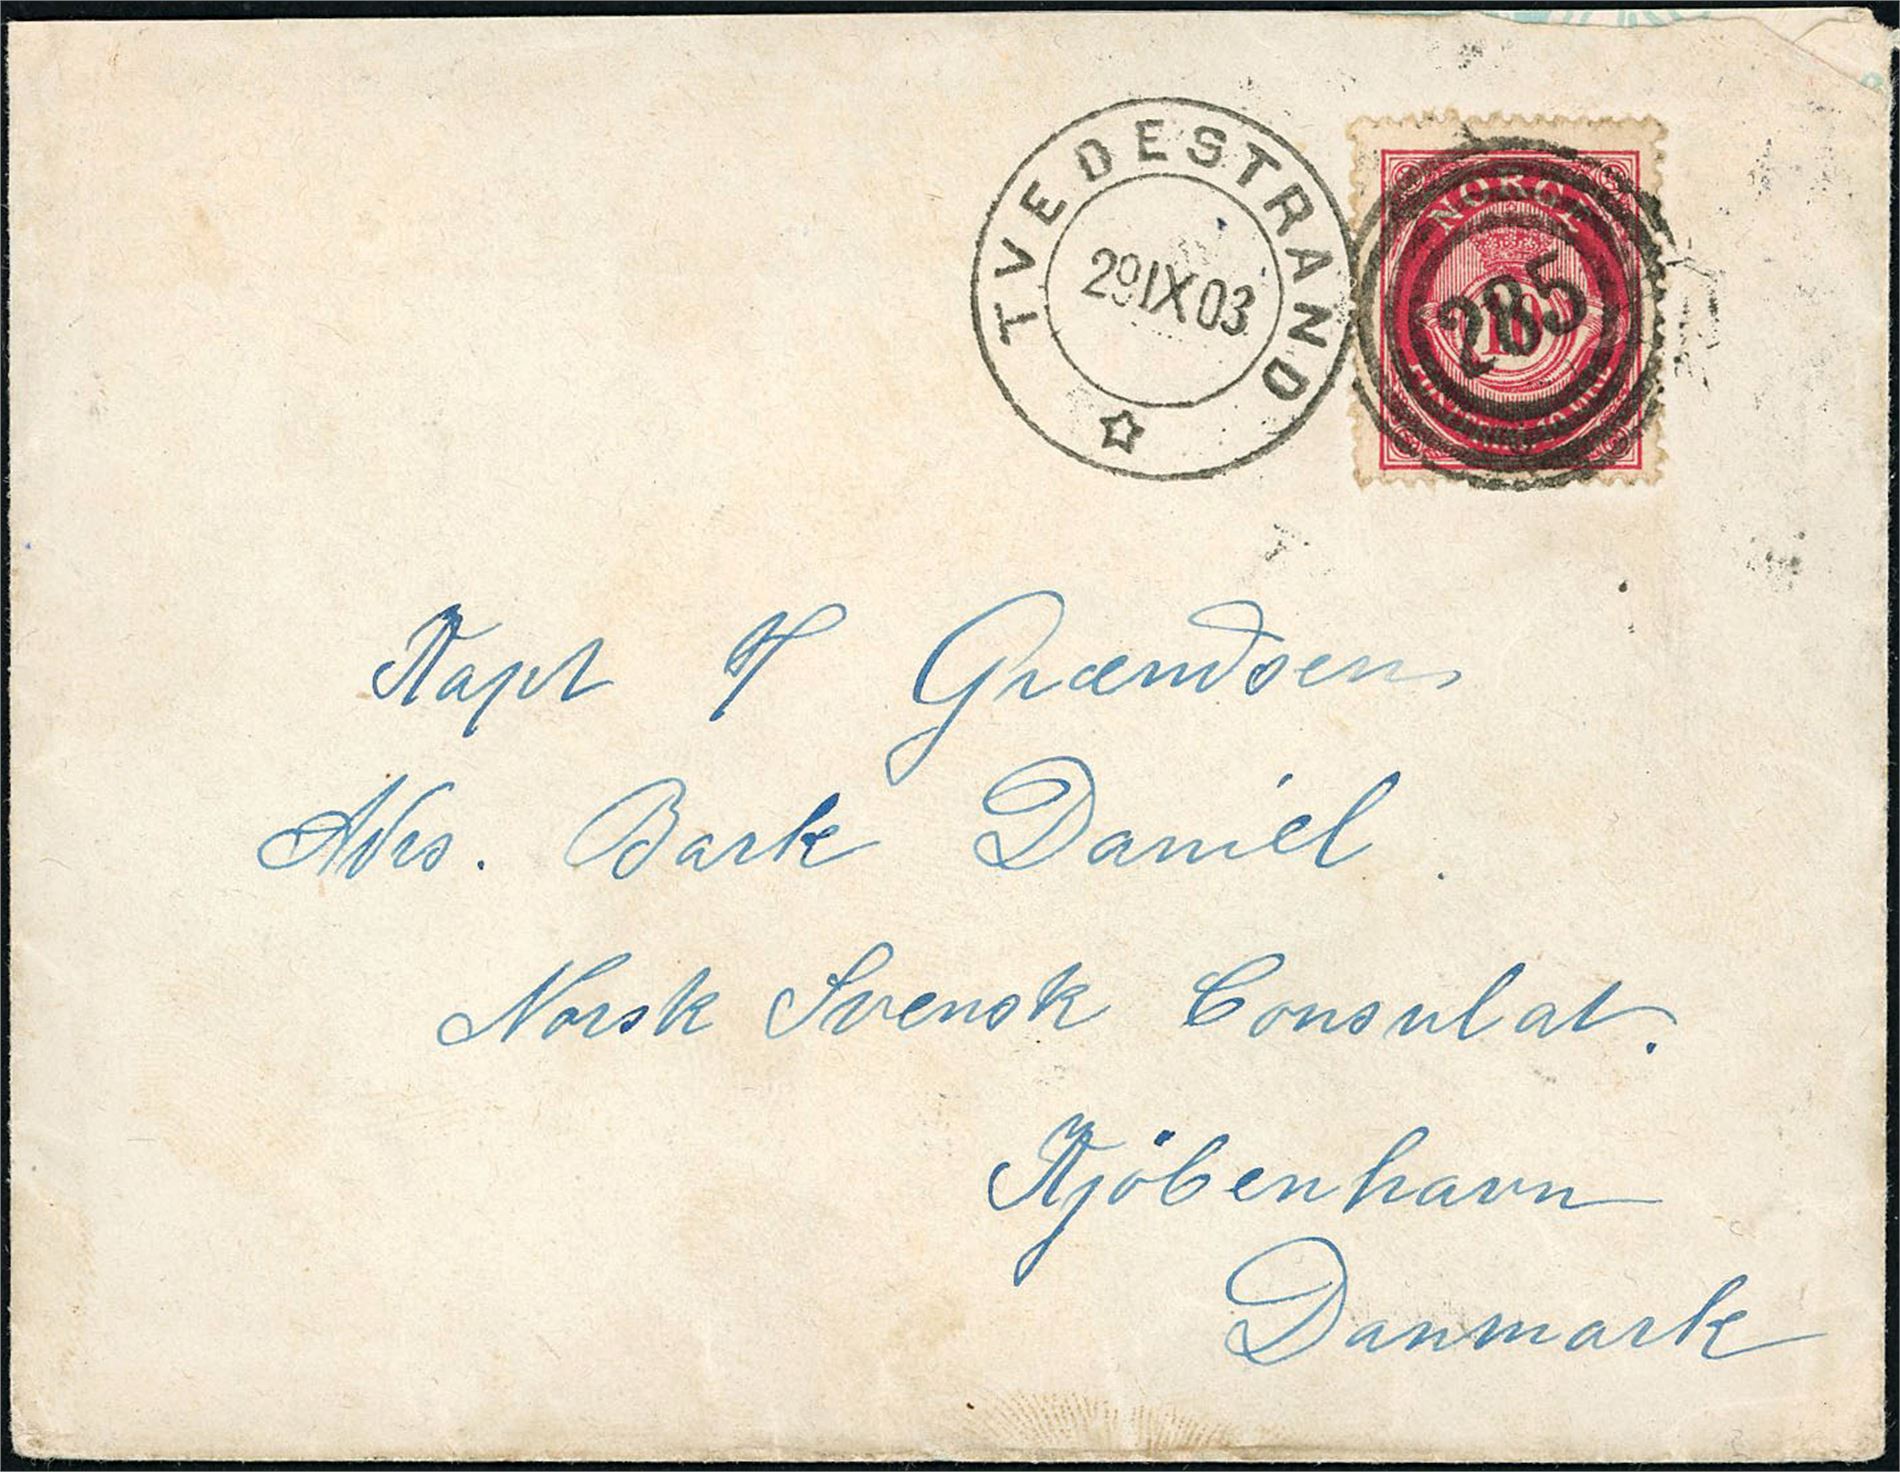 TVEDESTRAND
29 IX 03
NORGE
285
10
Kapt H Grændsen
Adrs. Bark Daniel.
Norsk Svensk Consulat.
Kjöbenhavn
Danmark